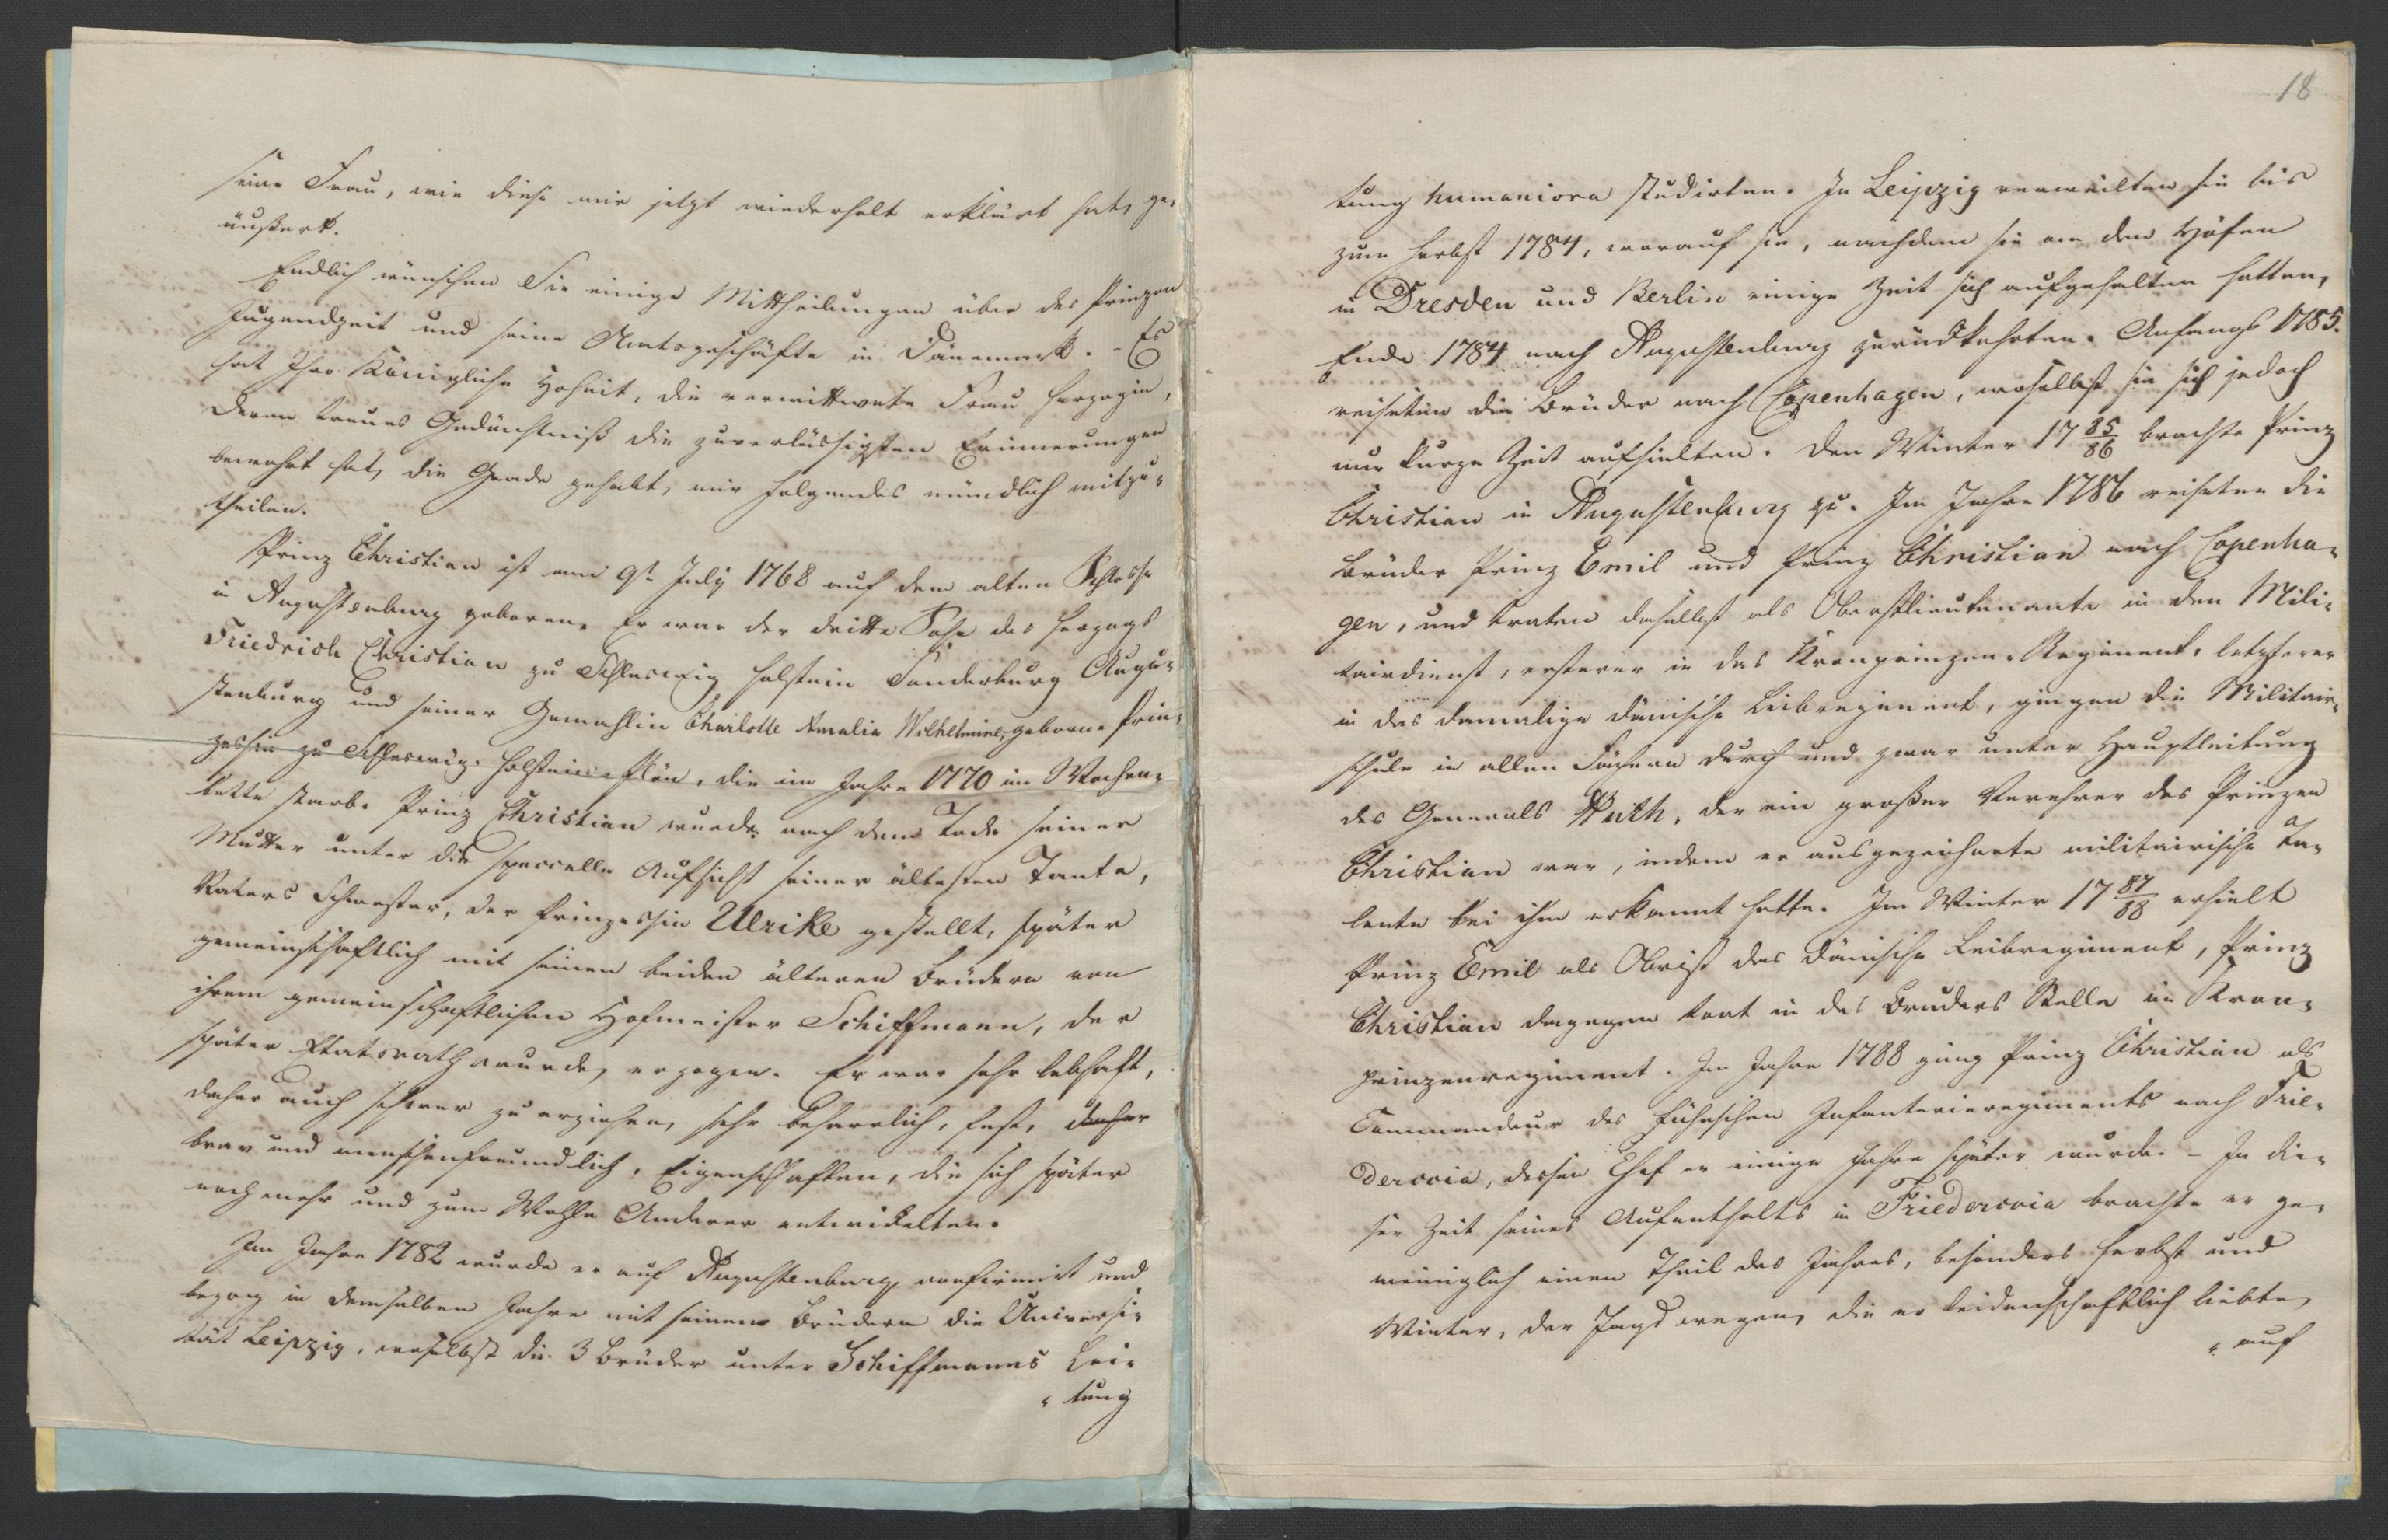 seine Frau, wie diese mir jetzt wiederholt erklärt hat, ge-
äußert.
Endlich wünschen Sie einige Mittheilungen über des Prinzen
Jugendzeit und seine Amtsgeschäfte in Dänemark. - Es
hat Ihre Königliche Hoheit, die verwittwete Frau Herzogin,
deren treues Gedächtniß die zuverlässigsten Erinnerungen
bewahrt hat, die Gnade gehabt, mir folgendes mündlich mitzu-
theilen.
Prinz Christian ist am 9t July 1768 auf dem alten Schlosse
in Augustenburg geboren. Er war der dritte Sohn des Herzogs
Friedrich Christian zu Schleswig Holstein Sonderburg Augu-
stenburg und seiner Gemahlin Charlotte Amalia Wilhelmine, geborne Prin-
zessin zu Schleswig-Holstein-Plön, die im Jahre 1770 im Wochen-
bette starb. Prinz Christian wurde nach dem Tode seiner
Mutter unter die specielle Aufsicht seiner ältesten Tante,
Vaters Schwester, der Prinzessin Ulrike gestellt, später
gemeinschaftlich mit seinen beiden älteren Brüdern von
ihrem gemeinschaftlichen Hofmeister Schiffmann, der
später Etatsrath wurde, erzogen. Er war sehr lebhaft,
daher auch schwer zu erziehen, sehr beharrlich, fest, daher
brav und menschenfreundlich. Eigenschaften, die sich später
noch mehr und zum Wohle Anderer entwickelten.
Im Jahre 1782 wurde er auf Augustenburg confirmirt und
bezog in demselben Jahre mit seinen Brüdern die Universi-
tät Leipzig, woselbst die 3 Brüder unter Schiffmanns Lei-
tung
18
tung humaniora studirten. In Leipzig verweilten sie bis
zum Herbst 1784, worauf sie, nachdem sie an den Höfen
in Dresden und Berlin einige Zeit sich aufgehalten hatten,
Ende 1784 nach Augustenburg zurückkehrten. Anfangs 1785.
reiseten die Brüder nach Copenhagen, woselbst sie sich jedoch
nur kurze Zeit aufhielten. Den Winter 17 85/86 brachte Prinz
Christian in Augustenburg zu. Im Jahre 1786 reiseten die
Brüder Prinz Emil und Prinz Christian nach Copenha-
gen, und traten daselbst als Oberstlieutenants in den Mili-
tairdienst, ersterer in das Kronprinzen-Regiment, letzterer
in das damalige dänische Leibregiment, gingen die Militair-
schule in allen Fächern durch und zwar unter Hauptleitung
des Generals Huth, der ein großer Verehrer des Prinzen
Christian war, indem er ausgezeichnete militairische Ta-
lente bei ihm erkannt hatte. Im Winter 17 87/88 erhielt
Prinz Emil als Obrist das dänische Leibregiment, Prinz
Christian dagegen trat in des Bruders Stelle im Kron-
prinzenregiment. Im Jahre 1788 ging Prinz Christian als
Commandeur des Fühnschen Infanterieregiments nach Frie-
dericia, dessen Chef er einige Jahre später wurde. - In die-
ser Zeit seines Aufenthalts in Friedericia brachte er ge-
meiniglich einen Theil des Jahres, besonders Herbst und
Winter, der Jagd wegen, die er leidenschaftlich liebte,
auf